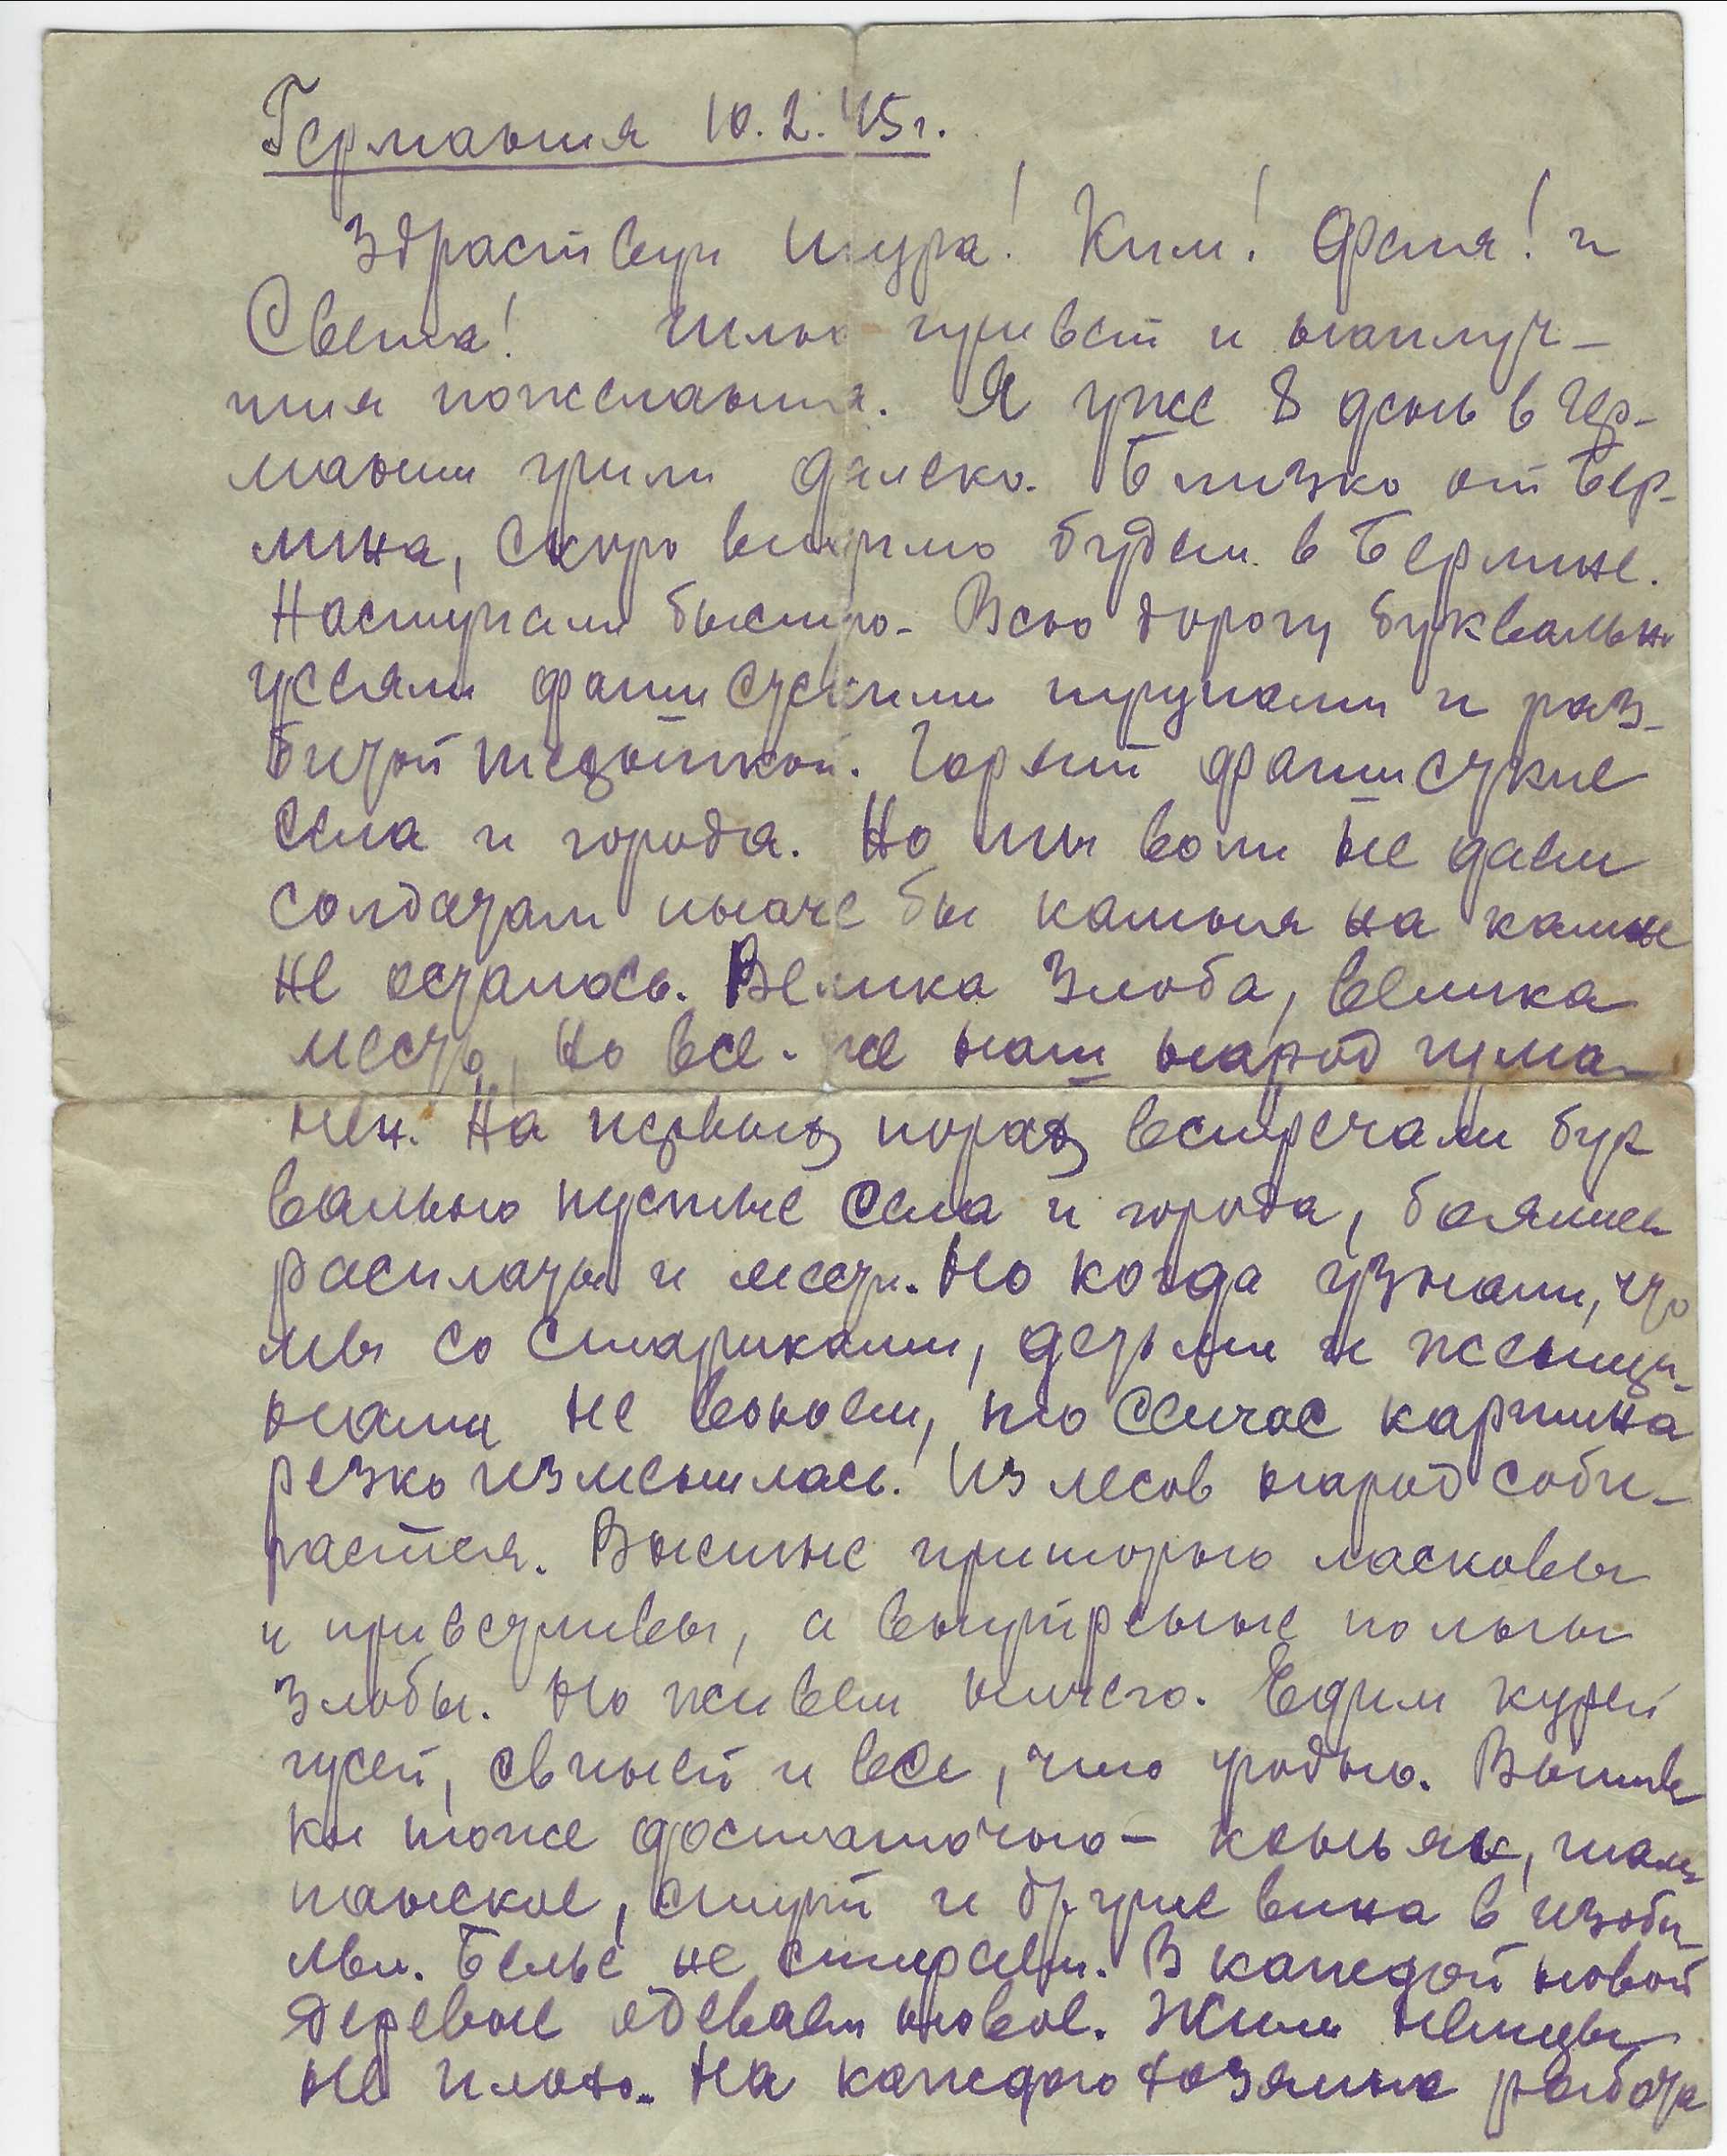 Германия 10.2.45г.
Здраствуй Шура! Ким! Фаня! и
Света! Шлю привет и наилуч-
шия пожелания. Я уже 8 день в Гер-
мании далеко. Близко от Бер-
лина, скоро будем в Берлине.
Наступали быстро. Всю дорогу буквально
усеяли фашисчскими трупами и раз-
битой техникой. Горят фашисчкие
села и города. Но мы воли не даем
солдатам иначе бы камня на камне
не осталось. Велика злоба, велика
месть, но все-же наш народ гума-
нен. На первых порах встречали бук
вально пустые села и города, боялись
расплаты и мести. Но когда узнали, что
мы со стариками, детьми и женщи-
нами не воюем, то сейчас картина
резко изменилась. Из лесов народ соби-
рается. Внешне приторно ласковы
и приветливы, а внутренне полны
злобы. Но живем ничего. Едим курей
гусей, свиней и все, что угодно. Выпив
ки тоже достаточно - коньяк, шам
панское, спирт и другие вина в изоби-
льи. Белье не стираем. В каждой новой
деревне одеваем новое. Жили немцы
не плохо. На каждого хозяина работа